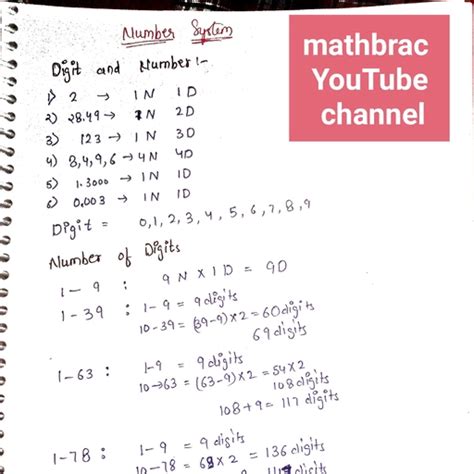 Number System
mathbrac
YouTube
channel
Digit and Number:-
1) 2 → 1N 1D
2) 28.49 → 1N 2D
3) 123 → 1N 3D
4) 8,4,9,6 → 4N 4D
5) 1.3000 → 1N 1D
6) 0.003 → 1N 1D
Digit = 0,1,2,3,4,5,6,7,8,9
Number of Digits
1-9 : 9N×1D = 9D
1-39 : 1-9 = 9 digits
10-39 = (39-9)×2 = 60 digits
69 digits
1-63 : 1-9 = 9 digits
10→63 = (63-9)×2 = 54×2
108 digits
108+9 = 117 digits
1-78 : 1-9 = 9 digits
10-78 = 68×2 = 136 digits